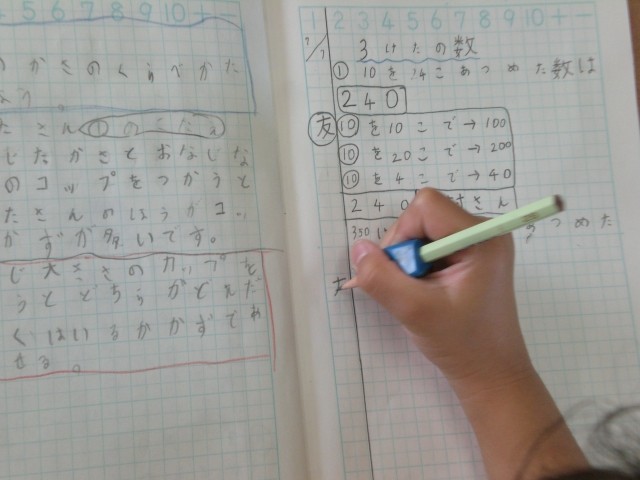 4 5 6 7 8 9 10 + −
かさのくらべかた
たさん①のこたえ
じたかさとおなじな
のコップをつかうと
たさんのほうがコ
かずが多いです。
じ大きさのカップを
うとどちらがどれだ
くはいるかかずであ
せる。
1 2 3 4 5 6 7 8 9 10 + −
3けたの数
① 10を24こあつめた数は
240
友 ⑩を10こで→100
⑩を20こで→200
⑩を4こで→40
240
350は
つめた